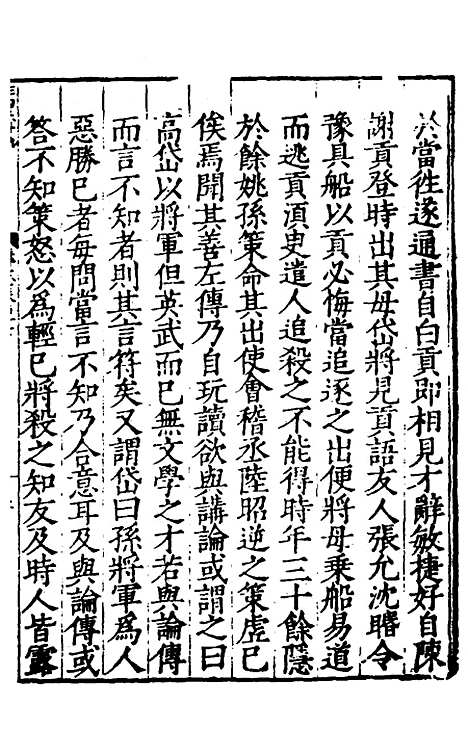 於當往遂通書自白貢即相見才辭敏捷好自陳
謝貢登時出其母岱將見貢語友人張允沈㬱令
豫具船以貢必悔當追逐之出便將母乘船易道
而逃貢湏臾遣人追殺之不能得時年三十餘隱
於餘姚孫策命其出使會稽丞陸昭逆之策虗已
俟焉聞其善左傳乃自玩讀欲與講論或謂之曰
高岱以將軍但英武而已無文學之才若與論傳
而言不知者則其言符矣又謂岱曰孫將軍爲人
惡勝已者每問當言不知乃合意耳及與論傳或
答不知策怒以爲輕已將殺之知友及時人皆露